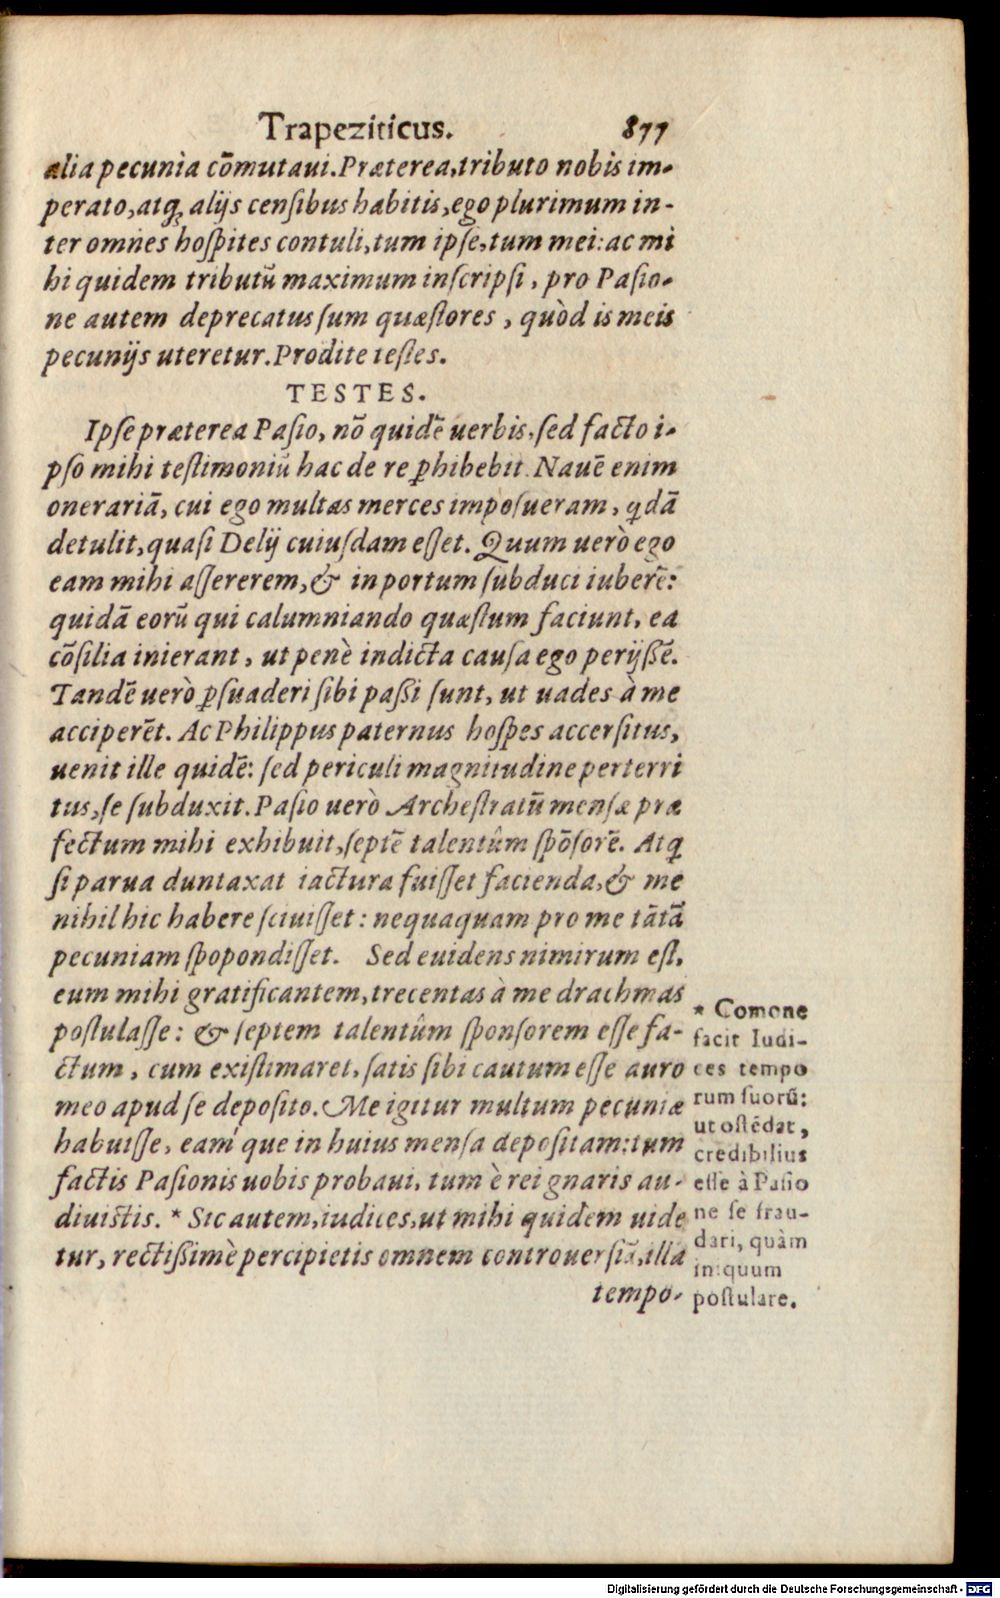 Trapeziticus. 877
alia pecunia cōmutaui. Præterea, tributo nobis im-
perato, atq́ȝ alijs censibus habitis, ego plurimum in-
ter omnes hospites contuli, tum ipse, tum mei: ac mi
hi quidem tributū maximum inscripsi, pro Pasio-
ne autem deprecatus sum quæstores, quòd is meis
pecunijs uteretur. Prodite testes.
TESTES.
Ipse præterea Pasio, nō quidē uerbis, sed facto i-
pso mihi testimoniū hac de re ꝑhibebit. Nauē enim
onerariā, cui ego multas merces imposueram, qdā
detulit, quasi Delij cuiusdam esset. Quum uerò ego
eam mihi assererem, & in portum subduci iuberē:
quidā eorū qui calumniando quæstum faciunt, ea
cōsilia inierant, ut penè indicta causa ego perijssē.
Tandē uerò ꝑsuaderi sibi passi sunt, ut uades à me
acciperēt. Ac Philippus paternus hospes accersitus,
uenit ille quidē: sed periculi magnitudine perterri
tus, se subduxit. Pasio uerò Archestratū mensæ præ
fectum mihi exhibuit, septē talentûm spōsorē. Atq́ȝ
si parua duntaxat iactura fuisset facienda, & me
nihil hic habere sciuisset: nequaquam pro me tātā
pecuniam spopondisset. Sed euidens nimirum est,
eum mihi gratificantem, trecentas à me drachmas
postulasse: & septem talentûm sponsorem esse fa-
ctum, cum existimaret, satis sibi cautum esse auro
meo apud se deposito. Me igitur multum pecuniæ
habuisse, eaḿque in huius mensa depositam: tum
factis Pasionis uobis probaui, tum è rei gnaris au-
diuistis. * Sic autem, iudices, ut mihi quidem uide
tur, rectissimè percipietis omnem controuersiā, illa
tempo-
* Comone
facit Iudi-
ces tempo
rum suorū:
ut ostēdat,
credibilius
esse à Pasio
ne se frau-
dari, quàm
iniquum
postulare.
Digitalisierung gefördert durch die Deutsche Forschungsgemeinschaft - DFG